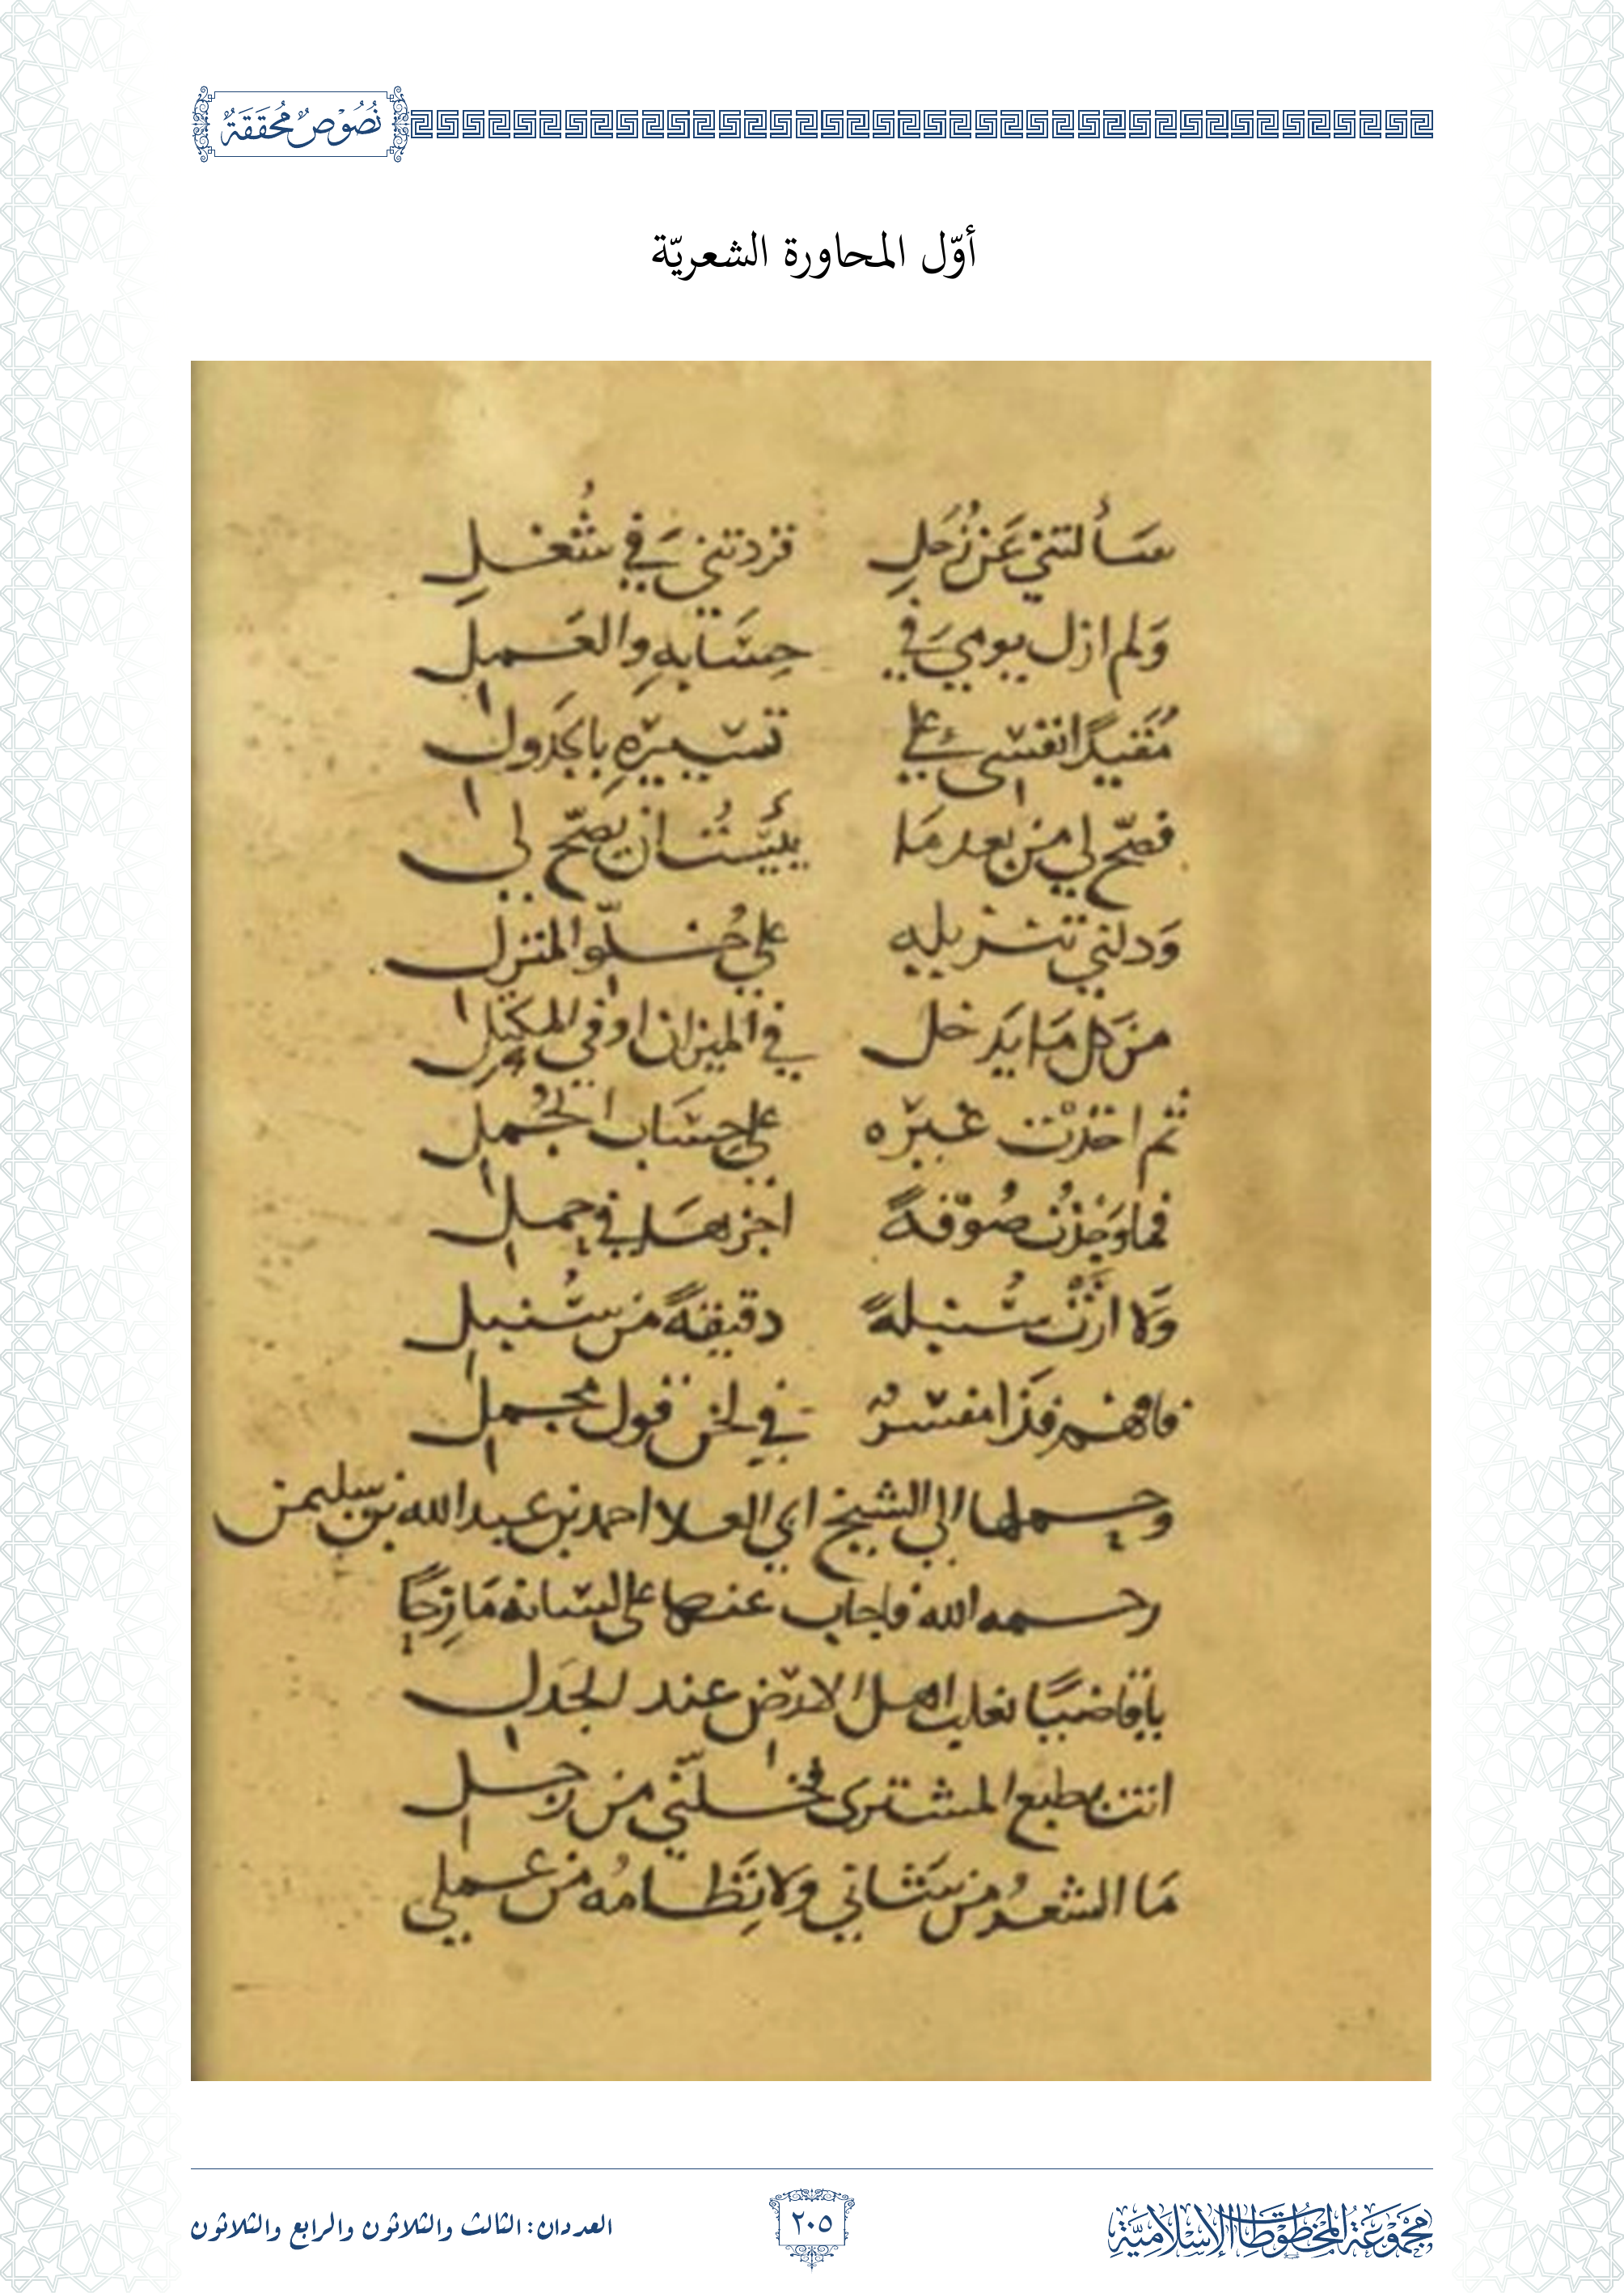 نُصُوْصٌ مُحَقَقَةٌ
أوّل المحاورة الشعريّة
سَأَلتني عَن زُحَلِ فزدتني في شُغلِ
وَلم ازل يومي في حِسَابهِ والعَمل
مُقَيدًا نفسي على تسييرهِ بالجَدول
فصَحّ لي من بعد مَا يَئِستُ ان يصَحّ لي
وَدلني تنزيله على خُلوّ المنزل
من كل مَا يَدخل في الميزان او في المكيَل
ثم اخذت غيره على حِسَاب الجُمل
فما وَجَدْتُ صُوْفةً اجزها في جمل
وَلا ارَتْ سُنبلةً دقيقةً من سُنبل
فافهم فَذا مفسرٌ في لحن قول مجمل
وحملها الى الشيخ ابي العلا احمد بن عبد الله بن سليمن
رحمه الله فاجاب عنها على لسانه مَازِحًا
يا قاضيًا نغلب اهل الارض عند الجَدل
انت بطبع المشترى فخلّني من زحل
مَا الشعرُ من شَاني ولا نِظَامُه من عملي
مَجْمُوْعَةُ المَخْطُوْطَاتِ الإِسْلَامِيَّةِ
٢٠٥
العددان: الثالث والثلاثون والرابع والثلاثون